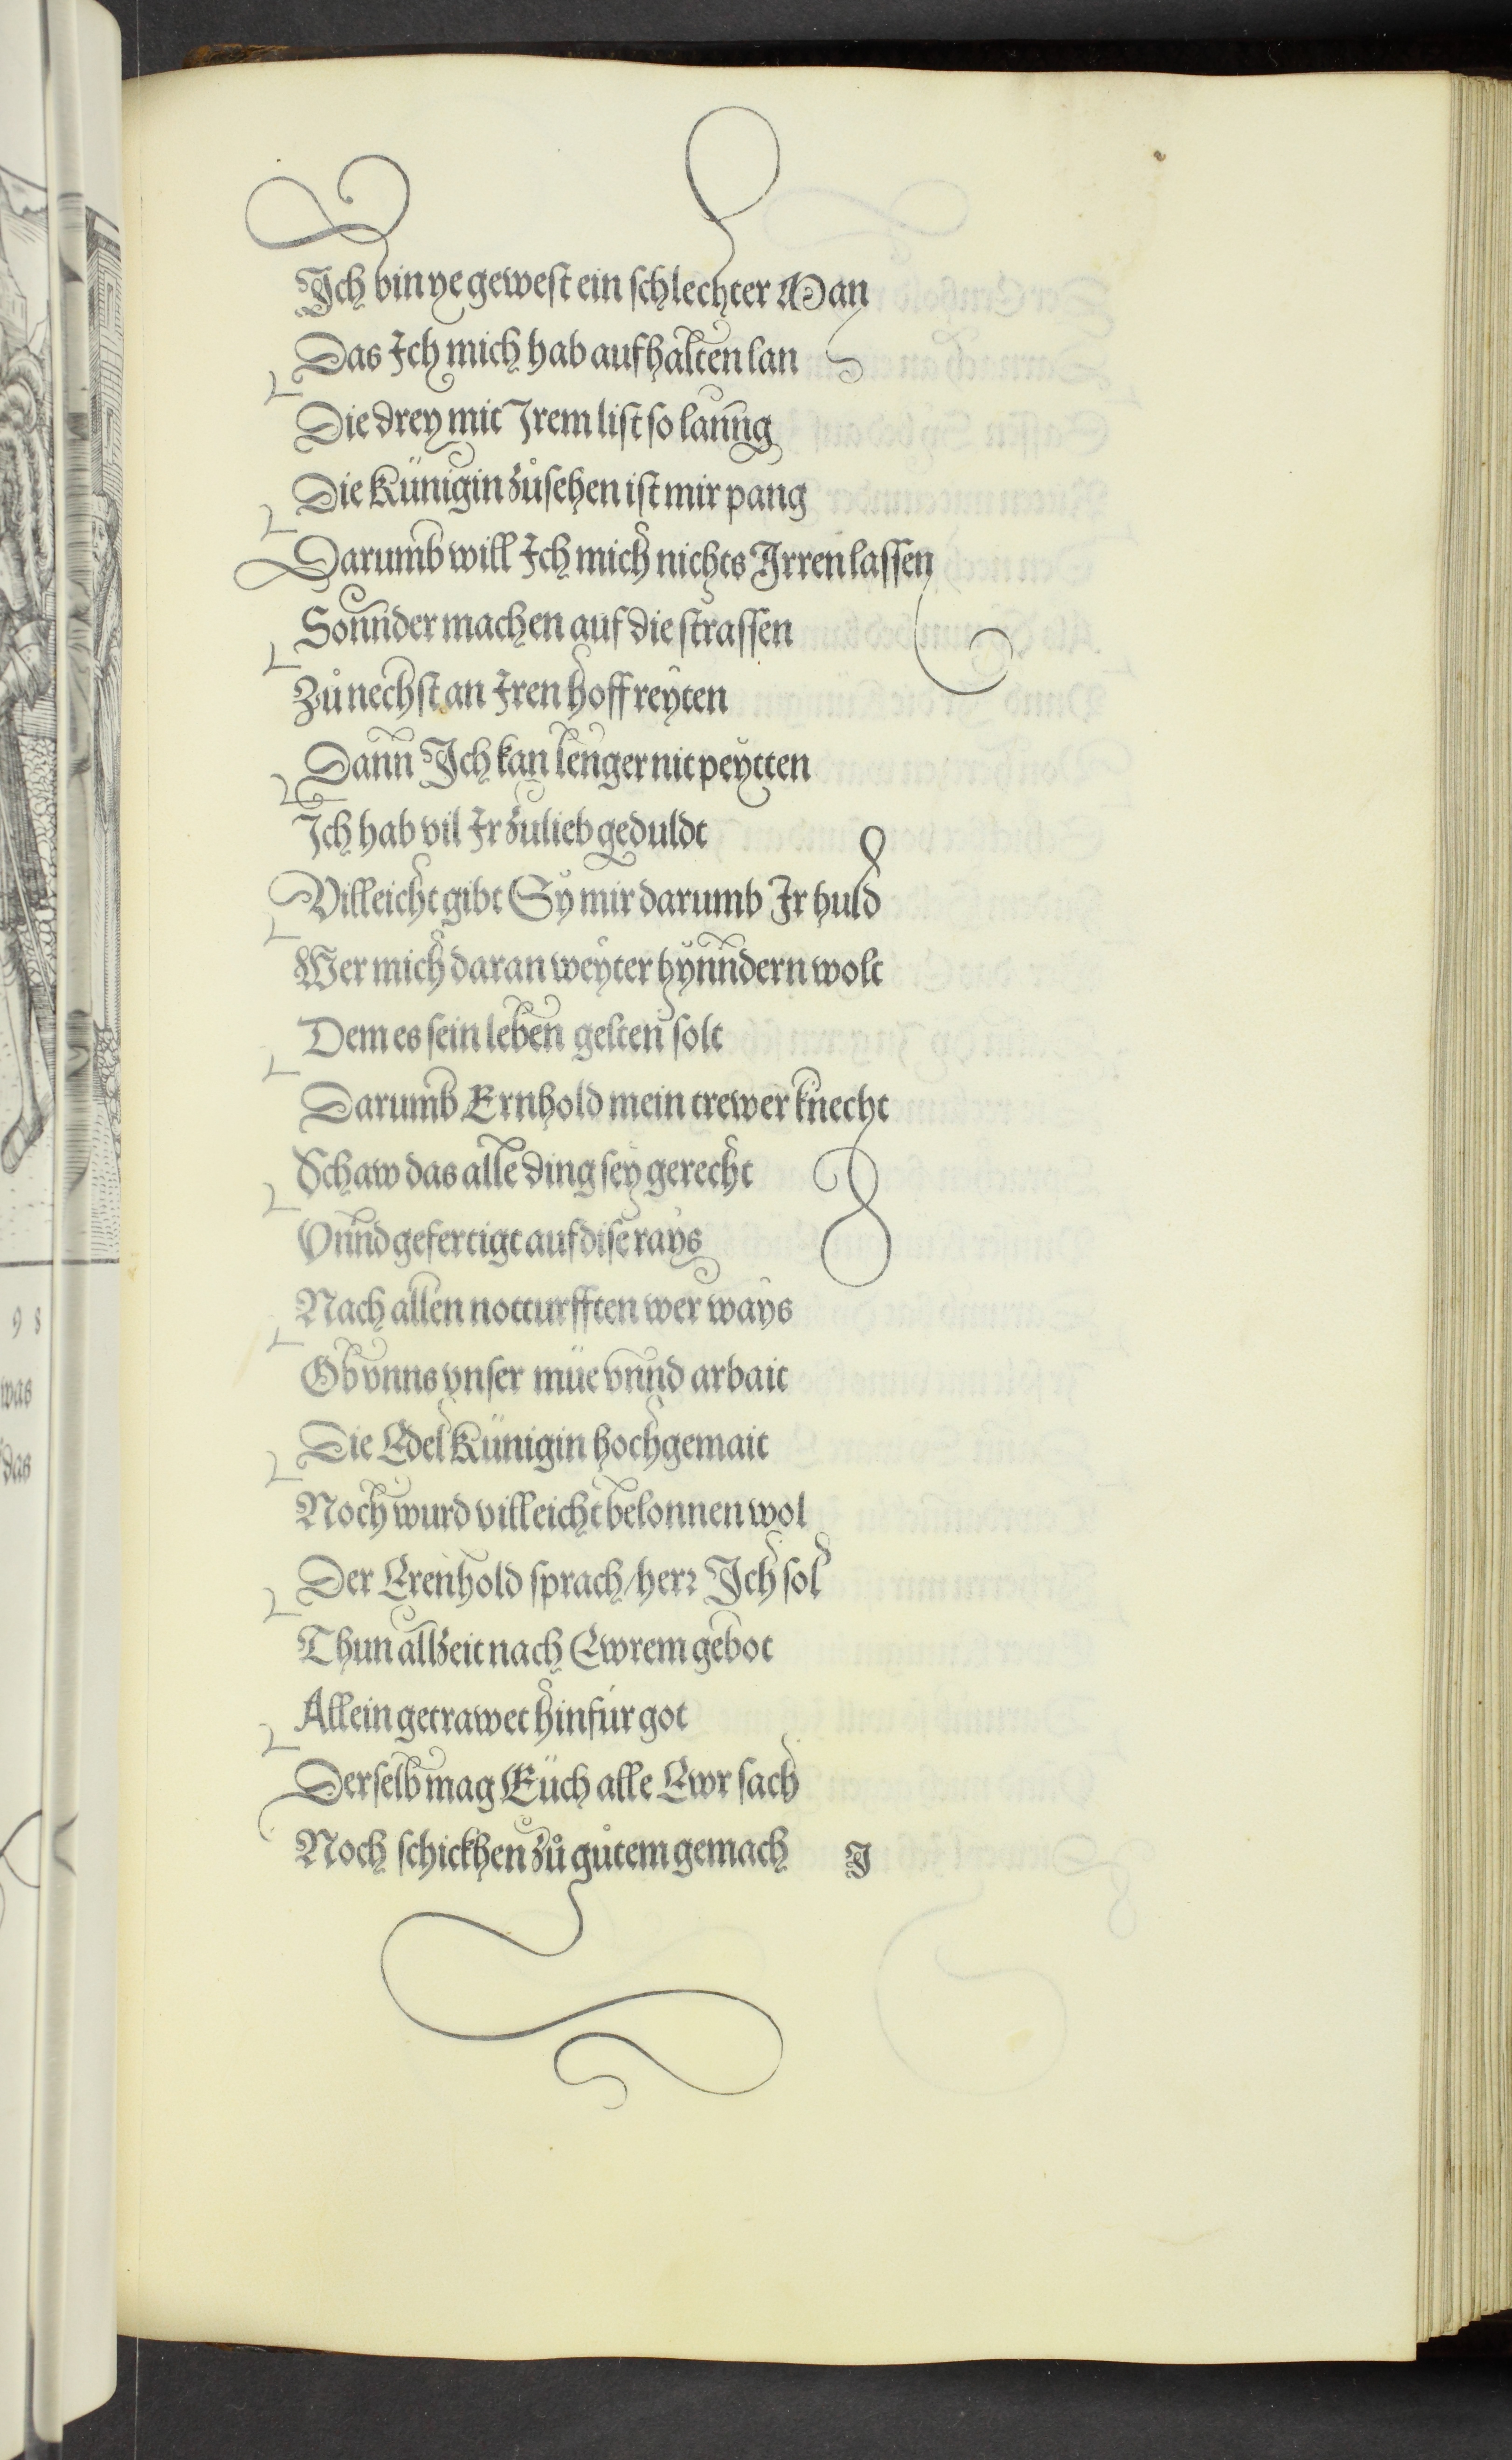 Ich bin ye gewest ein schlechter Man
Das Ich mich hab aufhalten lan
Die drey mit Irem list so lanng
Die Künigin zůsehen ist mir pang
Darumb will Ich mich nichts Irren lassen
Sonnder machen auf die strassen
Zů nechst an Iren hoff reyten
Dann Ich kan lenger nit peytten
Ich hab vil Ir zulieb geduldt
Villeicht gibt Sy mir darumb Ir huld
Wer mich daran weyter hynndern wolt
Dem es sein leben gelten solt
Darumb Ernhold mein trewer knecht
Schaw das alle ding sey gerecht
Vnnd gefertigt auf dise rays
Nach allen notturfften wer ways
Ob vnns vnser müe vnnd arbait
Die Edel Künigin hochgemait
Noch wurd villeicht belonnen wol
Der Erenhold sprach / herr Ich sol
Thun allzeit nach Ewrem gebot
Allein getrawet hinfür got
Derselb mag Euch alle Ewr sach
Noch schickhen zů gůtem gemach I
98
was
das